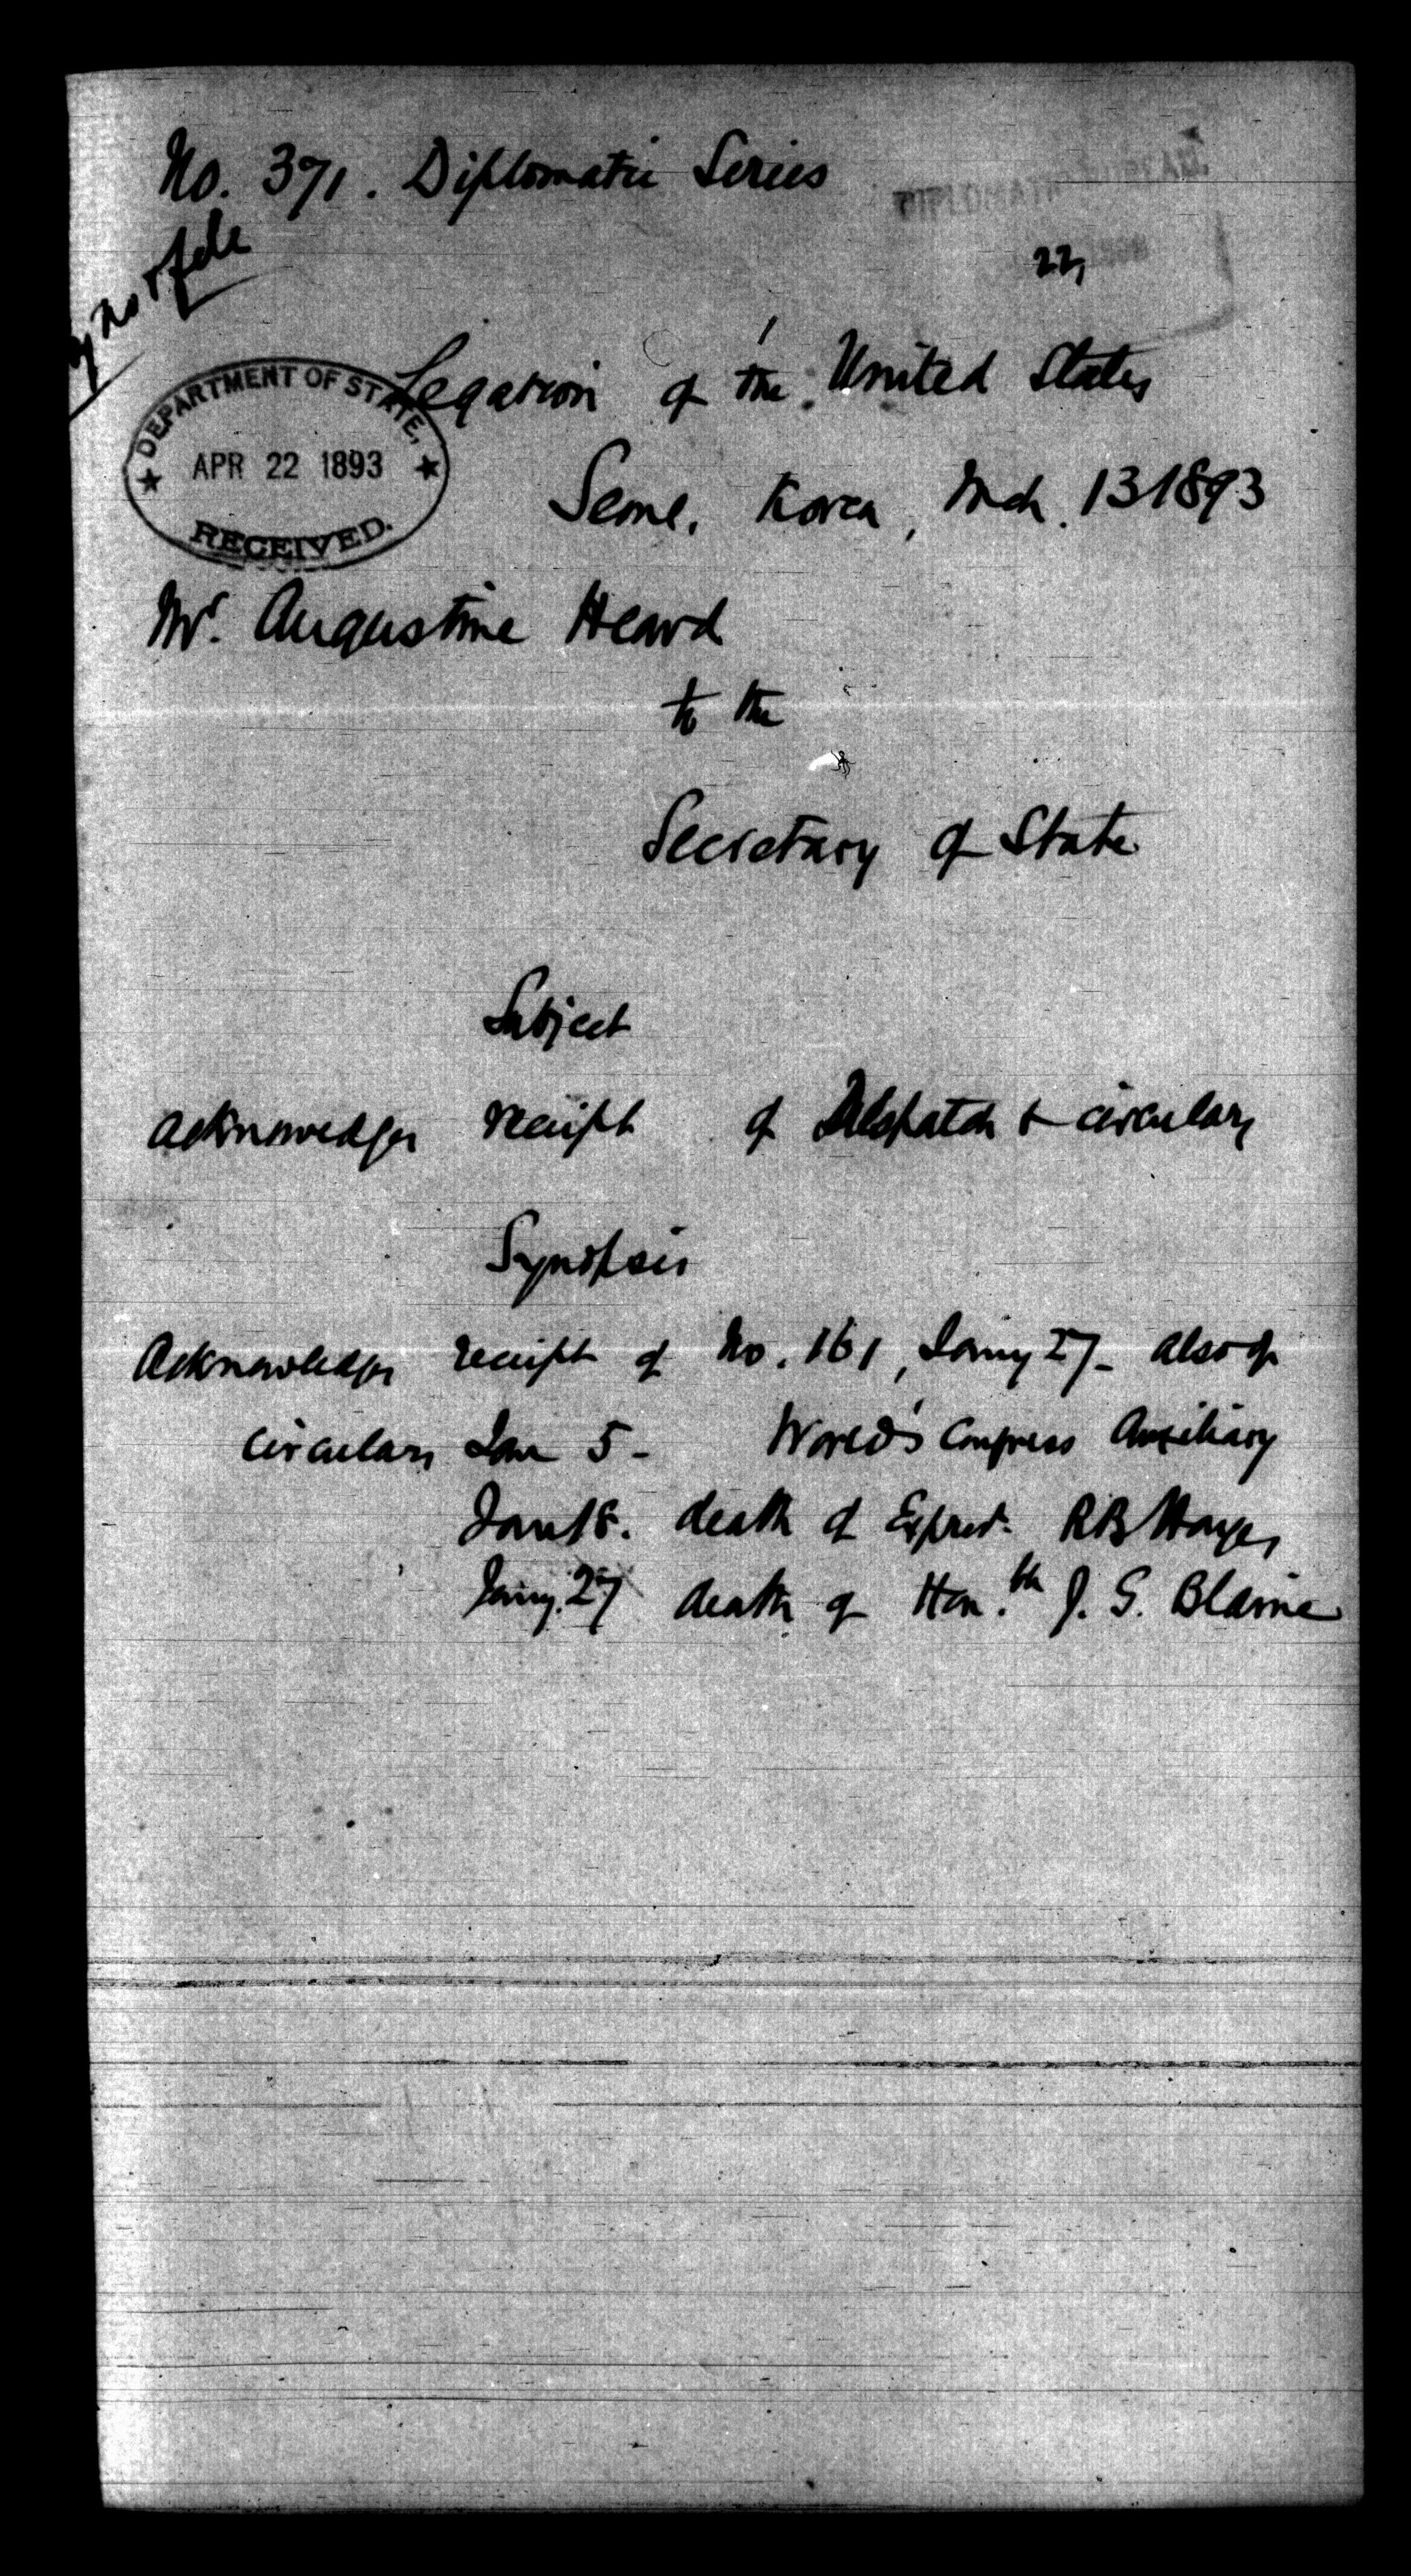 No. 371. Diplomatic Series
no & file
22,
Legation of the United States
DEPARTMENT OF STATE,
APR 22 1893
RECEIVED.
Seoul, Korea, Mch. 13 1893
Mr. Augustine Heard
to the
Secretary of State
Subject
Acknowledges receipt of Despatch & circulars
Synopsis
Acknowledges receipt of No. 161, Jany 27 - also of
circulars Jan 5 - World's Congress Auxiliary
Jan 18. death of Expres't. RB Hayes,
Jany. 27 death of Hon. ble J. G. Blaine